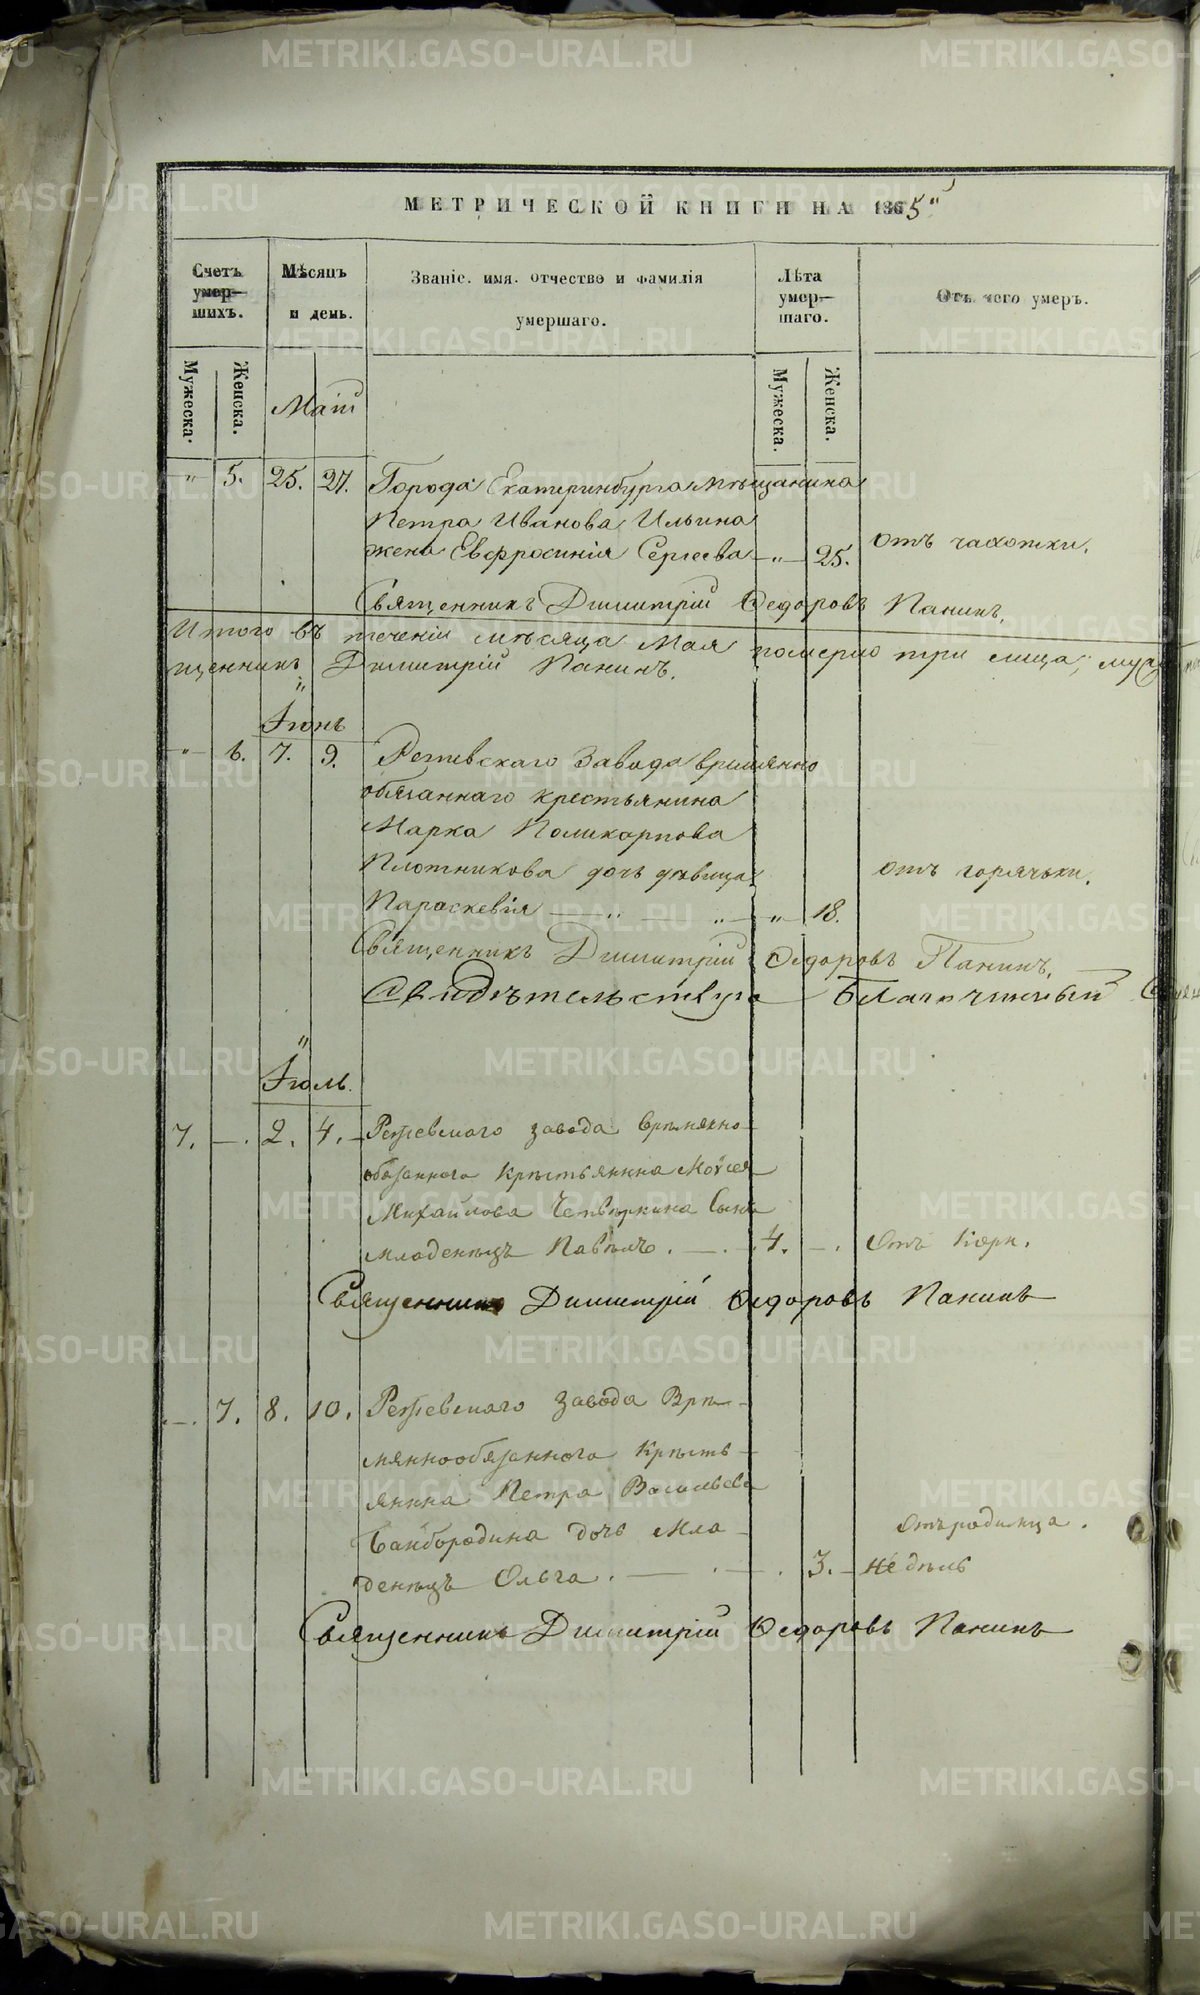 МЕТРИЧЕСКОЙ КНИГИ НА 1865"
Счетъ умер-шихъ.
Мѣсяцъ и день.
Званіе. имя. отчество и фамилія умершаго.
Лѣта умер-шаго.
Отъ чего умеръ.
Мужеска. Женска.
Маій
Мужеска. Женска.
" 5. 25. 27. Города Екатеринбурга мѣщанина
Петра Иванова Ильина
жена Евфросинія Сергеева — " — 25. отъ чахотки.
Священникъ Димитрій Ѳедоровъ Панинъ.
Итого въ теченіи мѣсяца Мая померло три лица, муж
щенникъ Димитрій Панинъ.
Іюнь
" 6. 7. 9. Режевскаго Завода времянно
обязаннаго крестьянина
Марка Поликарпова
Плотникова дочь дѣвица отъ горячьки.
Параскевія — " — " — " — 18.
Священникъ Димитрій Ѳедоровъ Панинъ.
Свидѣтельствуго Благочинный
Іюль.
7. —. 2. 4. Режевскаго завода врѣмянно
обязаннаго Крѣстьянина Моѵсея
Михайлова Четвѣркина Сынъ
младенѣцъ Павѣлъ. — . 4. — . Отъ Кори.
Священникъ Димитрій Ѳедоровъ Панинъ
—. 7. 8. 10. Режевскаго завода Врѣ-
мяннообязаннаго Крѣсть-
янина Петра Васильева
Байбородина дочь Мла- Отъ родимца.
денѣцъ Ольга. — . — . 3. — недѣль
Священникъ Димитрій Ѳедоровъ Панинъ
METRIKI.GASO-URAL.RU